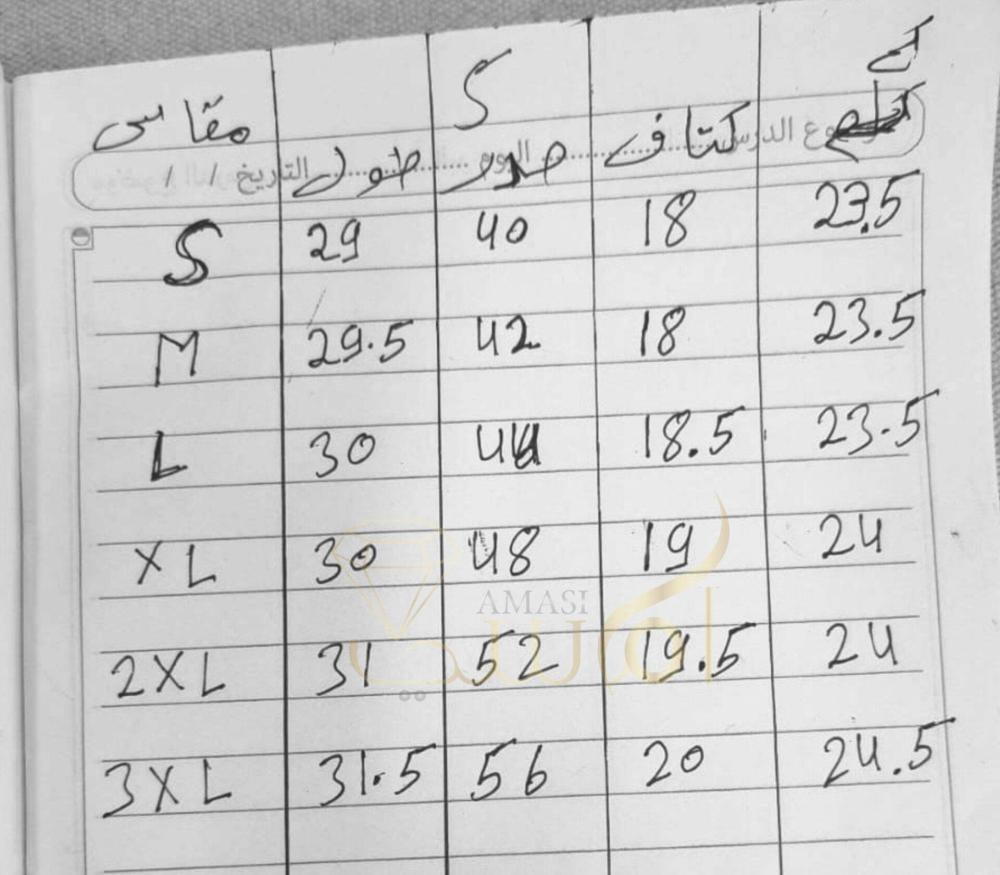 S
مقاس طول صدر كتاف كم
موضوع الدرس اليوم التاريخ / /
S 29 40 18 23.5
M 29.5 42 18 23.5
L 30 44 18.5 23.5
XL 30 48 19 24
AMASI
2XL 31 52 19.5 24
3XL 31.5 56 20 24.5